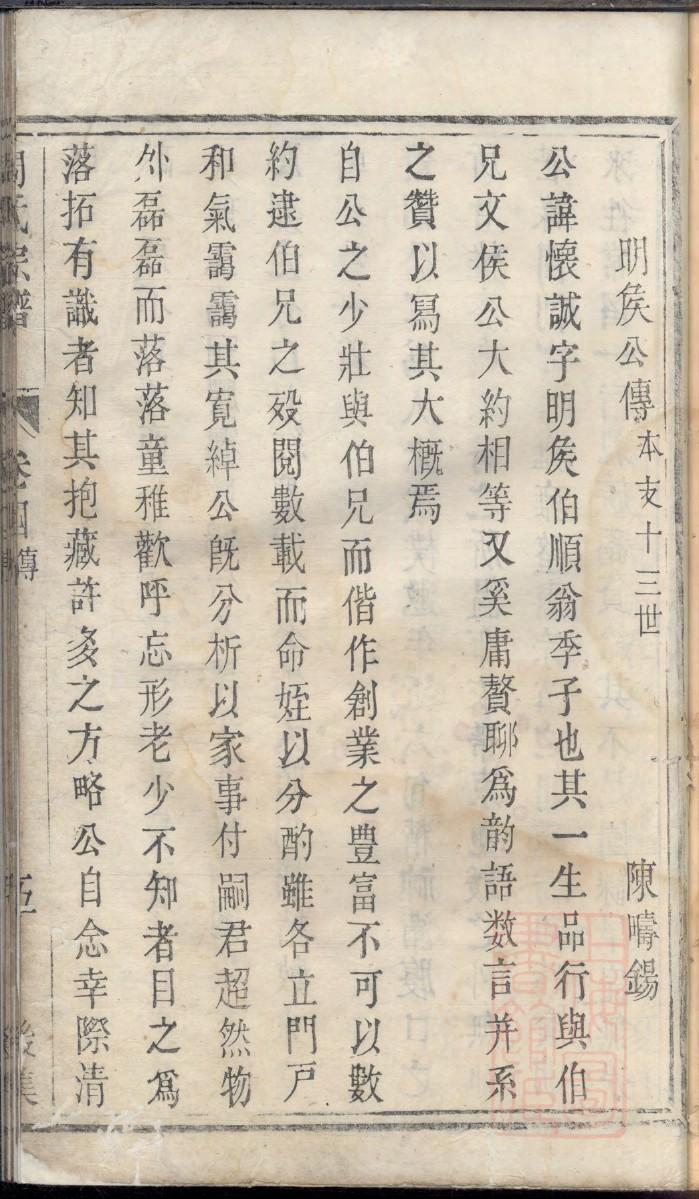 明矦公傳 本支十三世 陳疇錫
公諱懐誠字明矦伯順翁季子也其一生品行與伯
兄文侯公大約相等又奚庸贅聊爲韵語数言并系
之贊以冩其大槪焉
自公之少壯與伯兄而偕作創業之豊富不可以數
約逮伯兄之殁閱數載而命姪以分酌雖各立門戸
和氣靄靄其寛綽公旣分析以家事付嗣君超然物
外磊磊而落落童稚歡呼忘形老少不知者目之爲
落拓有識者知其抱藏許多之方略公自念幸際清
氏宗譜 卷四 傳 五